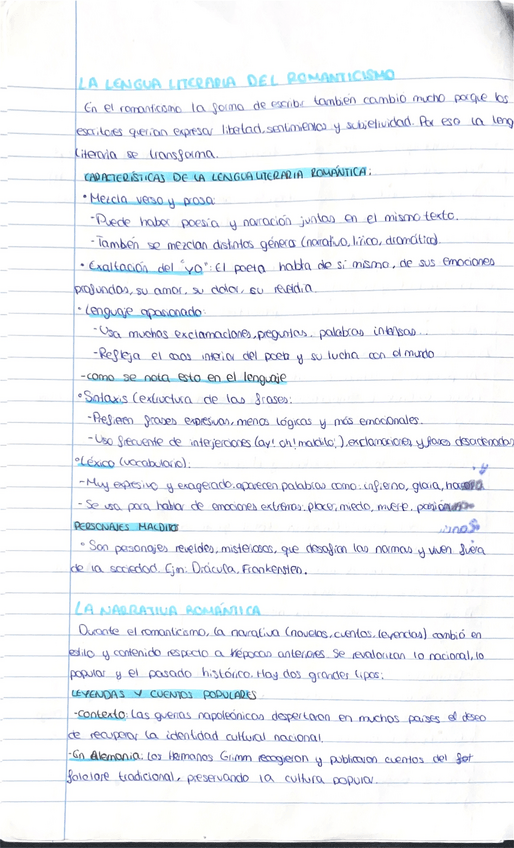 LA LENGUA LITERARIA DEL ROMANTICISMO
En el romanticismo la forma de escribir tambien cambio mucho porque los
escritores querian expresar libertad, sentimientos y subjetividad. Por eso la leng
literaria se transforma.
CARACTERÍSTICAS DE LA LENGUA LITERARIA ROMÁNTICA:
• Mezcla verso y prosa
-Puede haber poesía y narración juntas en el mismo texto.
-También se mezclan distintos géneros (narrativo, lírico, dramático).
• Exaltación del "yo": El poeta habla de si mismo, de sus emociones
profundas, su amor, su dolor, su rebeldia.
• Lenguaje apasionado
-Usa muchas exclamaciones, preguntas, palabras intensas...
-Refleja el caos interior del poeta y su lucha con el mundo
-como se nota esto en el lenguaje
• Sintaxis (extructura de las frases:
-Prefieren frases expresivas, menos lógicas y más emocionales.
-Uso frecuente de interjeciones (ay! oh! maldito!), exclamaciones y frases desordenadas
• Léxico (vocabulario).
-Muy expresivo y exagerado. aparecen palabras como: infierno, gloria,
-Se usa para hablar de emociones extremas: placer, miedo, muerte,
PERSONAJES MALDITOS
• Son personajes reveldes, misteriosos, que desafian las normas y viven fuera
de la sociedad. Ejm: Drácula, Frankenstein.
LA NARRATIVA ROMÁNTICA
Durante el romanticismo, la narrativa (novelas, cuentos, leyendas) cambió en
estilo y contenido respecto a népocas anteriores. Se revalorizan lo nacional, lo
popular y el pasado histórico. Hay dos grandes tipos:
LEYENDAS Y CUENTOS POPULARES
-Contexto: Las guerras napoleónicas despertaron en muchos paises el deseo
de recuperar la identidad cultural nacional.
-En Alemania: Los Hermanos Grimm recogieron y publicaron cuentos del
folclore tradicional, preservando la cultura popular.